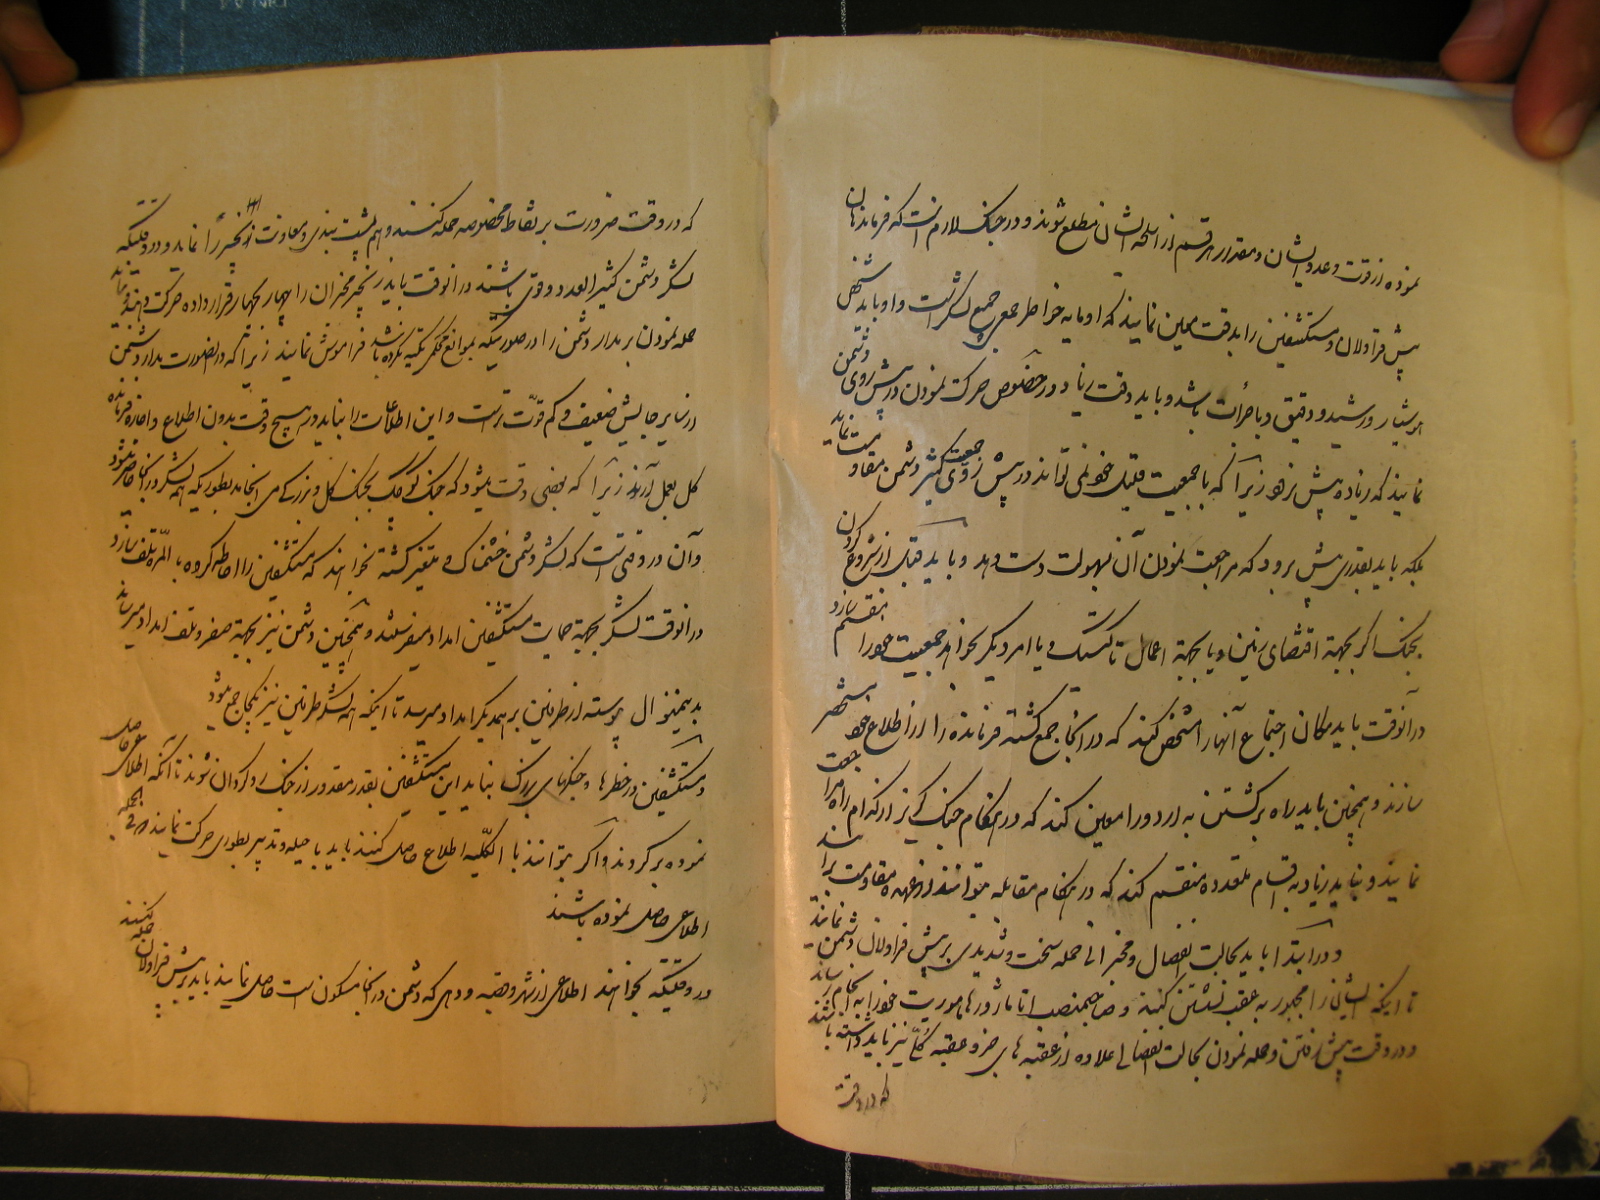 نموده از قوت و عدد ایشان و مقدار هر قسم از اسلحه ایشان مطلع شوند و در جنگ لازم است که فرماندهان
پیش قراولان و مستکشفین را بدقت معین نمایند که او مایه خواطر جمعی جمیع لشکر است و او باید شخص
هوشیار و رشید و دقیق و با جرأت باشد و باید دقت زیاد در خصوص حرکت نمودن در پیش روی دشمن
نمایند که زیاده پیش نرفته زیرا که با جمعیت قلیل خود نمی تواند در پیش روی جمعیت کثیر دشمن مقاومت نماید
بلکه باید بقدری پیش برود که مراجعت نمودن آن بسهولت دست دهد و باید قبل از شروع کردن
بجنگ اگر بجهة اقتضای زمین و یا بجهة اعمال تاکتیک و یا امر دیگر بخواهد جمعیت خود را منقسم سازد
در آنوقت باید مکان اجتماع آنها را مشخص کند که در آنجا جمع گشته فرمانده را از اطلاع خود مستحضر
سازند و همچنین باید راه برگشتن به اردو را معین کند که در هنگام جنگ گریز از کدام راه مراجعت
نمایند و نباید زیاد به اقسام متعدده منقسم کند که در هنگام مقابله بتوانند از عهده مقاومت برآیند
و در ابتدا باید بحالت انفصال و مخبرانی حمله سخت و شدیدی بر پیش قراولان دشمن نمایند
تا اینکه ایشان را مجبور به عقب نشستن کنند و صاحبمنصب اتاماژورها مأموریت خود را به انجام رساند
و در وقت پیش رفتن و حمله نمودن بحالت انفصالی علاوه از عقبه های جزو عقبه کل نیز باید داشته باشند
که در وقت
که در وقت ضرورت بر نقاط مخصوصه حمله کنند و هم پشت بندی و معاونت زنجیر را نماید و در وقتیکه
لشکر دشمن کثیر العدد و قوی باشند در آنوقت باید زنجیر مخبران را چهار بچهار قرار داده حرکت دهند و
حمله نمودن بر مدار دشمن را در صورتیکه بموانع محکمی تکیه نکرده باشد فراموش نمایند زیرا که در اینصورت مدار دشمن
از سایر جایش ضعیف و کم قوّت تر است و این اطلاعات را نباید در هیچ وقت بدون اطلاع و اجازه فرمانده
کل بعمل آرند زیرا که بعضی وقت میشود که جنگ کوچک بجنگ کل و بزرگ می انجامد بطوریکه همه لشکر در آنجا حاضر میشود
و آن در وقتی است که لشکر دشمن خشمناک و متغیر گشته بخواهند که مستکشفین را احاطه کرده بالمرّه تلف سازد
در آنوقت لشکر بجهة حمایت مستکشفین امداد میفرستند و همچنین دشمن نیز بجهة صفر و تلف امداد میرساند
بدینمنوال پیوسته از طرفین بر همدیگر امداد میرسد تا اینکه همه لشکر طرفین نیز یکجا جمع شود
و مستکشفین در خطرها و جنگهای بزرگ نباید این مستکشفین بقدر مقدور از جنگ رو گردان شوند تا آنکه اطلاعی حاصل
نموده برگردند و اگر بتوانند بالکلیه اطلاع حاصل کنند باید با حیله و تدبیر بطوری حرکت نمایند که فی الجمله
اطلاعی حاصل نموده باشند
در وقتیکه بخواهند اطلاعی از شهر و قصبه و دهی که دشمن در آنجا مسکون است حاصل نمایند باید بر پیش قراولان حمله کنند